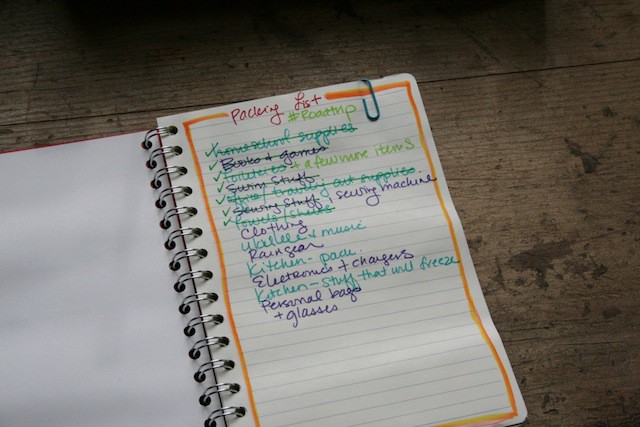 Packing List
#Roadtrip
homeschool supplies
Books + games
toiletries + a few more items
Swim stuff
office/traveling art supplies
Sewing stuff, sewing machine
towels/sheets
Clothing
Ukulele + music
Raingear
Kitchen - pack
Electronics + chargers
Kitchen - stuff that will freeze
Personal bags
+ glasses